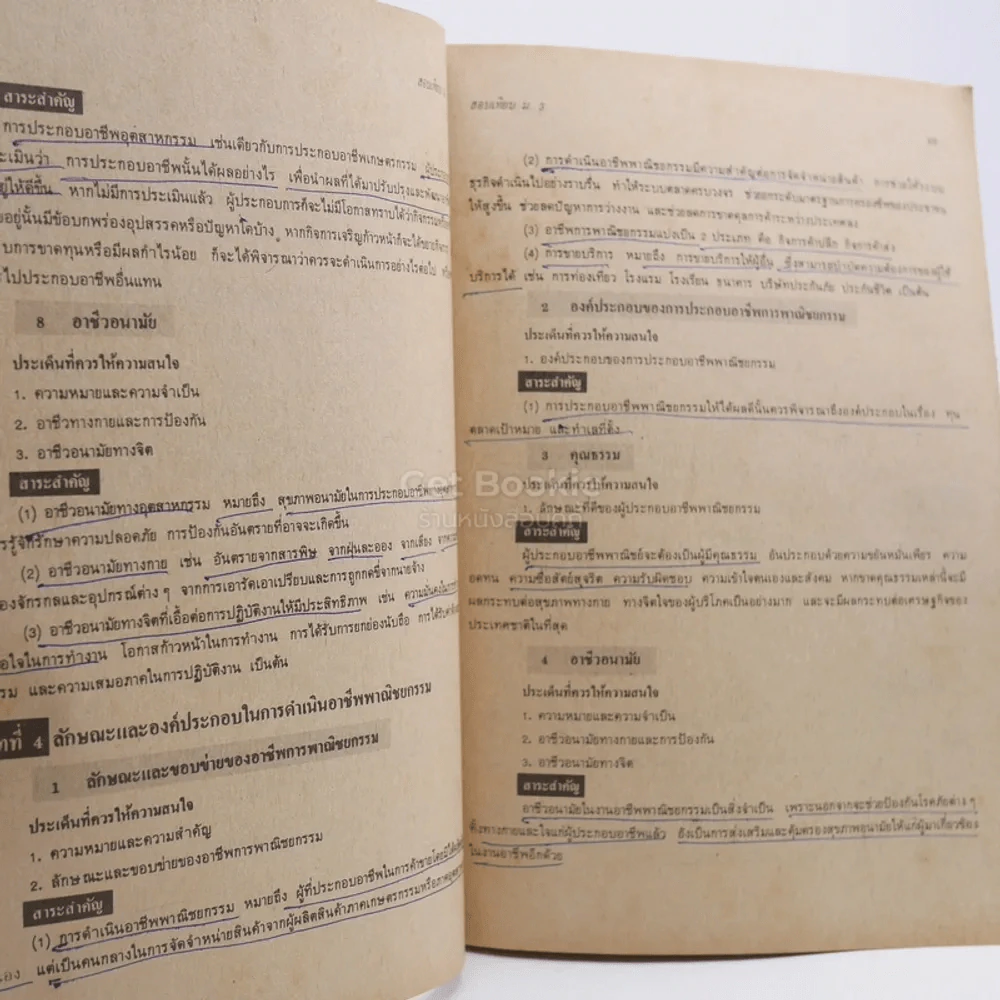 สอบเทียบ
สาระสำคัญ
การประกอบอาชีพอุตสาหกรรม เช่นเดียวกับการประกอบอาชีพเกษตรกรรม
ระเมินว่า การประกอบอาชีพนั้นได้ผลอย่างไร เพื่อนำผลที่ได้มาปรับปรุงและพัฒนา
อยู่ให้ดีขึ้น หากไม่มีการประเมินแล้ว ผู้ประกอบการก็จะไม่มีโอกาสทราบได้ว่ากิจกรรม
อยู่นั้นมีข้อบกพร่องอุปสรรคหรือปัญหาใดบ้าง หากกิจการเจริญก้าวหน้าก็จะได้ขยายกิจการ
บการขาดทุนหรือมีผลกำไรน้อย ก็จะได้พิจารณาว่าควรจะดำเนินการอย่างไรต่อไป
ไปประกอบอาชีพอื่นแทน
8 อาชีวอนามัย
ประเด็นที่ควรให้ความสนใจ
1. ความหมายและความจำเป็น
2. อาชีวทางกายและการป้องกัน
3. อาชีวอนามัยทางจิต
สาระสำคัญ
(1) อาชีวอนามัยทางอุตสาหกรรม หมายถึง สุขภาพอนามัยในการประกอบอาชีพ
ารรู้จักรักษาความปลอดภัย การป้องกันอันตรายที่อาจจะเกิดขึ้น
(2) อาชีวอนามัยทางกาย เช่น อันตรายจากสารพิษ จากฝุ่นละออง จากเสียง
องจักรกลและอุปกรณ์ต่าง ๆ จากการเอารัดเอาเปรียบและการถูกกดขี่จากนายจ้าง
(3) อาชีวอนามัยทางจิตที่เอื้อต่อการปฏิบัติงานให้มีประสิทธิภาพ เช่น ความมั่นคงในการ
อใจในการทำงาน โอกาสก้าวหน้าในการทำงาน การได้รับการยกย่องนับถือ การได้รับ
รม และความเสมอภาคในการปฏิบัติงาน เป็นต้น
ทที่ 4 ลักษณะและองค์ประกอบในการดำเนินอาชีพพาณิชยกรรม
1 ลักษณะและขอบข่ายของอาชีพการพาณิชยกรรม
ประเด็นที่ควรให้ความสนใจ
1. ความหมายและความสำคัญ
2. ลักษณะและขอบข่ายของอาชีพการพาณิชยกรรม
สาระสำคัญ
(1) การดำเนินอาชีพพาณิชยกรรม หมายถึง ผู้ที่ประกอบอาชีพในการค้าขายโดยมิได้
เอง แต่เป็นคนกลางในการจัดจำหน่ายสินค้าจากผู้ผลิตสินค้าภาคเกษตรกรรมหรือภาค
สอบเทียบ ม. 3
(2) การดำเนินอาชีพพาณิชยกรรมมีความสำคัญต่อการจัดจำหน่ายสินค้า การช่วยให้งาน
ธุรกิจดำเนินไปอย่างราบรื่น ทำให้ระบบตลาดครบวงจร ช่วยยกระดับมาตรฐานการครองชีพของประชาชน
ให้สูงขึ้น ช่วยลดปัญหาการว่างงาน และช่วยลดการขาดดุลการค้าระหว่างประเทศลง
(3) อาชีพการพาณิชยกรรมแบ่งเป็น 2 ประเภท คือ กิจการค้าปลีก กิจการค้าส่ง
(4) การขายบริการ หมายถึง การขายบริการให้ผู้อื่น ซึ่งสามารถบำบัดความต้องการของผู้ใช้
บริการได้ เช่น การท่องเที่ยว โรงแรม โรงเรียน ธนาคาร บริษัทประกันภัย ประกันชีวิต เป็นต้น
2 องค์ประกอบของการประกอบอาชีพการพาณิชยกรรม
ประเด็นที่ควรให้ความสนใจ
1. องค์ประกอบของการประกอบอาชีพพาณิชยกรรม
สาระสำคัญ
(1) การประกอบอาชีพพาณิชยกรรมให้ได้ผลดีนั้นควรพิจารณาถึงองค์ประกอบในเรื่อง ทุน
ตลาดเป้าหมาย และทำเลที่ตั้ง
3 คุณธรรม
ประเด็นที่ควรให้ความสนใจ
1. ลักษณะที่ดีของผู้ประกอบอาชีพพาณิชยกรรม
สาระสำคัญ
ผู้ประกอบอาชีพพาณิชย์จะต้องเป็นผู้มีคุณธรรม อันประกอบด้วยความขยันหมั่นเพียร ความ
อดทน ความซื่อสัตย์สุจริต ความรับผิดชอบ ความเข้าใจตนเองและสังคม หากขาดคุณธรรมเหล่านี้จะมี
ผลกระทบต่อสุขภาพทางกาย ทางจิตใจของผู้บริโภคเป็นอย่างมาก และจะมีผลกระทบต่อเศรษฐกิจของ
ประเทศชาติในที่สุด
4 อาชีวอนามัย
ประเด็นที่ควรให้ความสนใจ
1. ความหมายและความจำเป็น
2. อาชีวอนามัยทางกายและการป้องกัน
3. อาชีวอนามัยทางจิต
สาระสำคัญ
อาชีวอนามัยในงานอาชีพพาณิชยกรรมเป็นสิ่งจำเป็น เพราะนอกจากจะช่วยป้องกันโรคภัยต่าง ๆ
ทั้งทางกายและใจแก่ผู้ประกอบอาชีพแล้ว ยังเป็นการส่งเสริมและคุ้มครองสุขภาพอนามัยให้แก่ผู้มาเกี่ยวข้อง
ในงานอาชีพอีกด้วย
Get Bookie